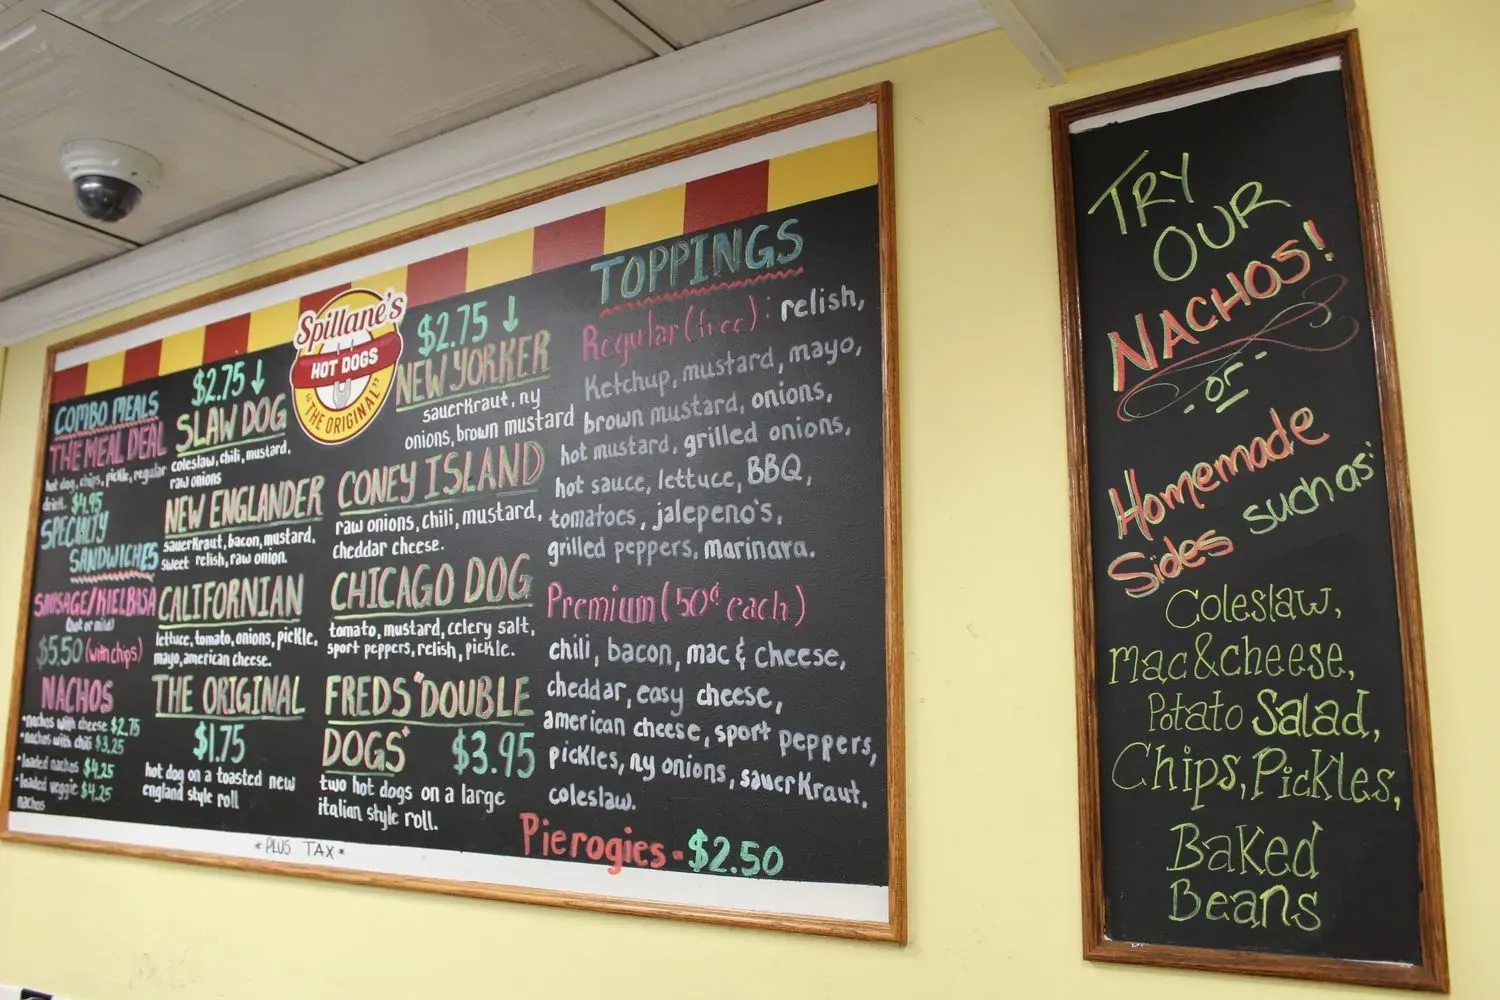 COMBO MEALS
THE MEAL DEAL
hot dog, chips, pickle, regular
drink. $4.95
SPECIALTY
SANDWICHES
SAUSAGE/KIELBASA
(hot or mild)
$5.50 (with chips)
NACHOS
*nachos with cheese $2.75
*nachos with chili $3.25
*loaded nachos $4.25
*loaded veggie $4.25
nachos
$2.75 ↓
SLAW DOG
coleslaw, chili, mustard,
raw onions
NEW ENGLANDER
sauerkraut, bacon, mustard,
sweet relish, raw onion.
CALIFORNIAN
lettuce, tomato, onions, pickle,
mayo, american cheese.
THE ORIGINAL
$1.75
hot dog on a toasted new
england style roll
Spillane's
HOT DOGS
"THE ORIGINAL"
$2.75 ↓
NEW YORKER
sauerkraut, ny
onions, brown mustard
CONEY ISLAND
raw onions, chili, mustard,
cheddar cheese.
CHICAGO DOG
tomato, mustard, celery salt,
sport peppers, relish, pickle.
FREDS "DOUBLE
DOGS" $3.95
two hot dogs on a large
italian style roll.
TOPPINGS
Regular (free): relish,
Ketchup, mustard, mayo,
brown mustard, onions,
hot mustard, grilled onions,
hot sauce, lettuce, BBQ,
tomatoes, jalepeno's,
grilled peppers, marinara.
Premium (50¢ each)
chili, bacon, mac & cheese,
cheddar, easy cheese,
american cheese, sport peppers,
pickles, ny onions, sauerkraut,
coleslaw.
Pierogies - $2.50
*PLUS TAX*
TRY
OUR
NACHOS!
-or-
Homemade
Sides such as:
Coleslaw,
Mac & cheese,
Potato Salad,
Chips, Pickles,
Baked
Beans